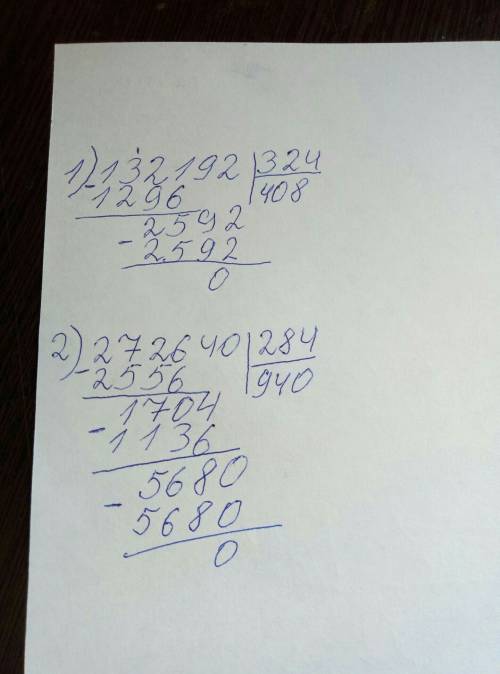 1) 132192 | 324
- 1296 408
2592
- 2592
0
2) 272640 | 284
- 2556 940
1704
- 1136
5680
- 5680
0